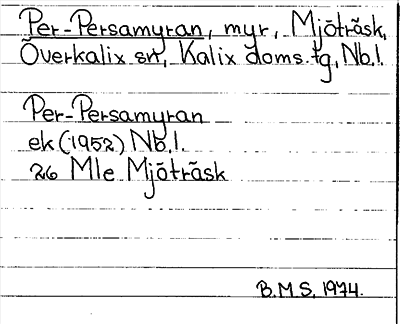 Per-Persamyran, myr, Mjöträsk,
Överkalix sn, Kalix doms. tg, Nb.l.
Per-Persamyran
ek (1952) Nb.l.
26 Mle Mjöträsk
B.M.S. 1974.